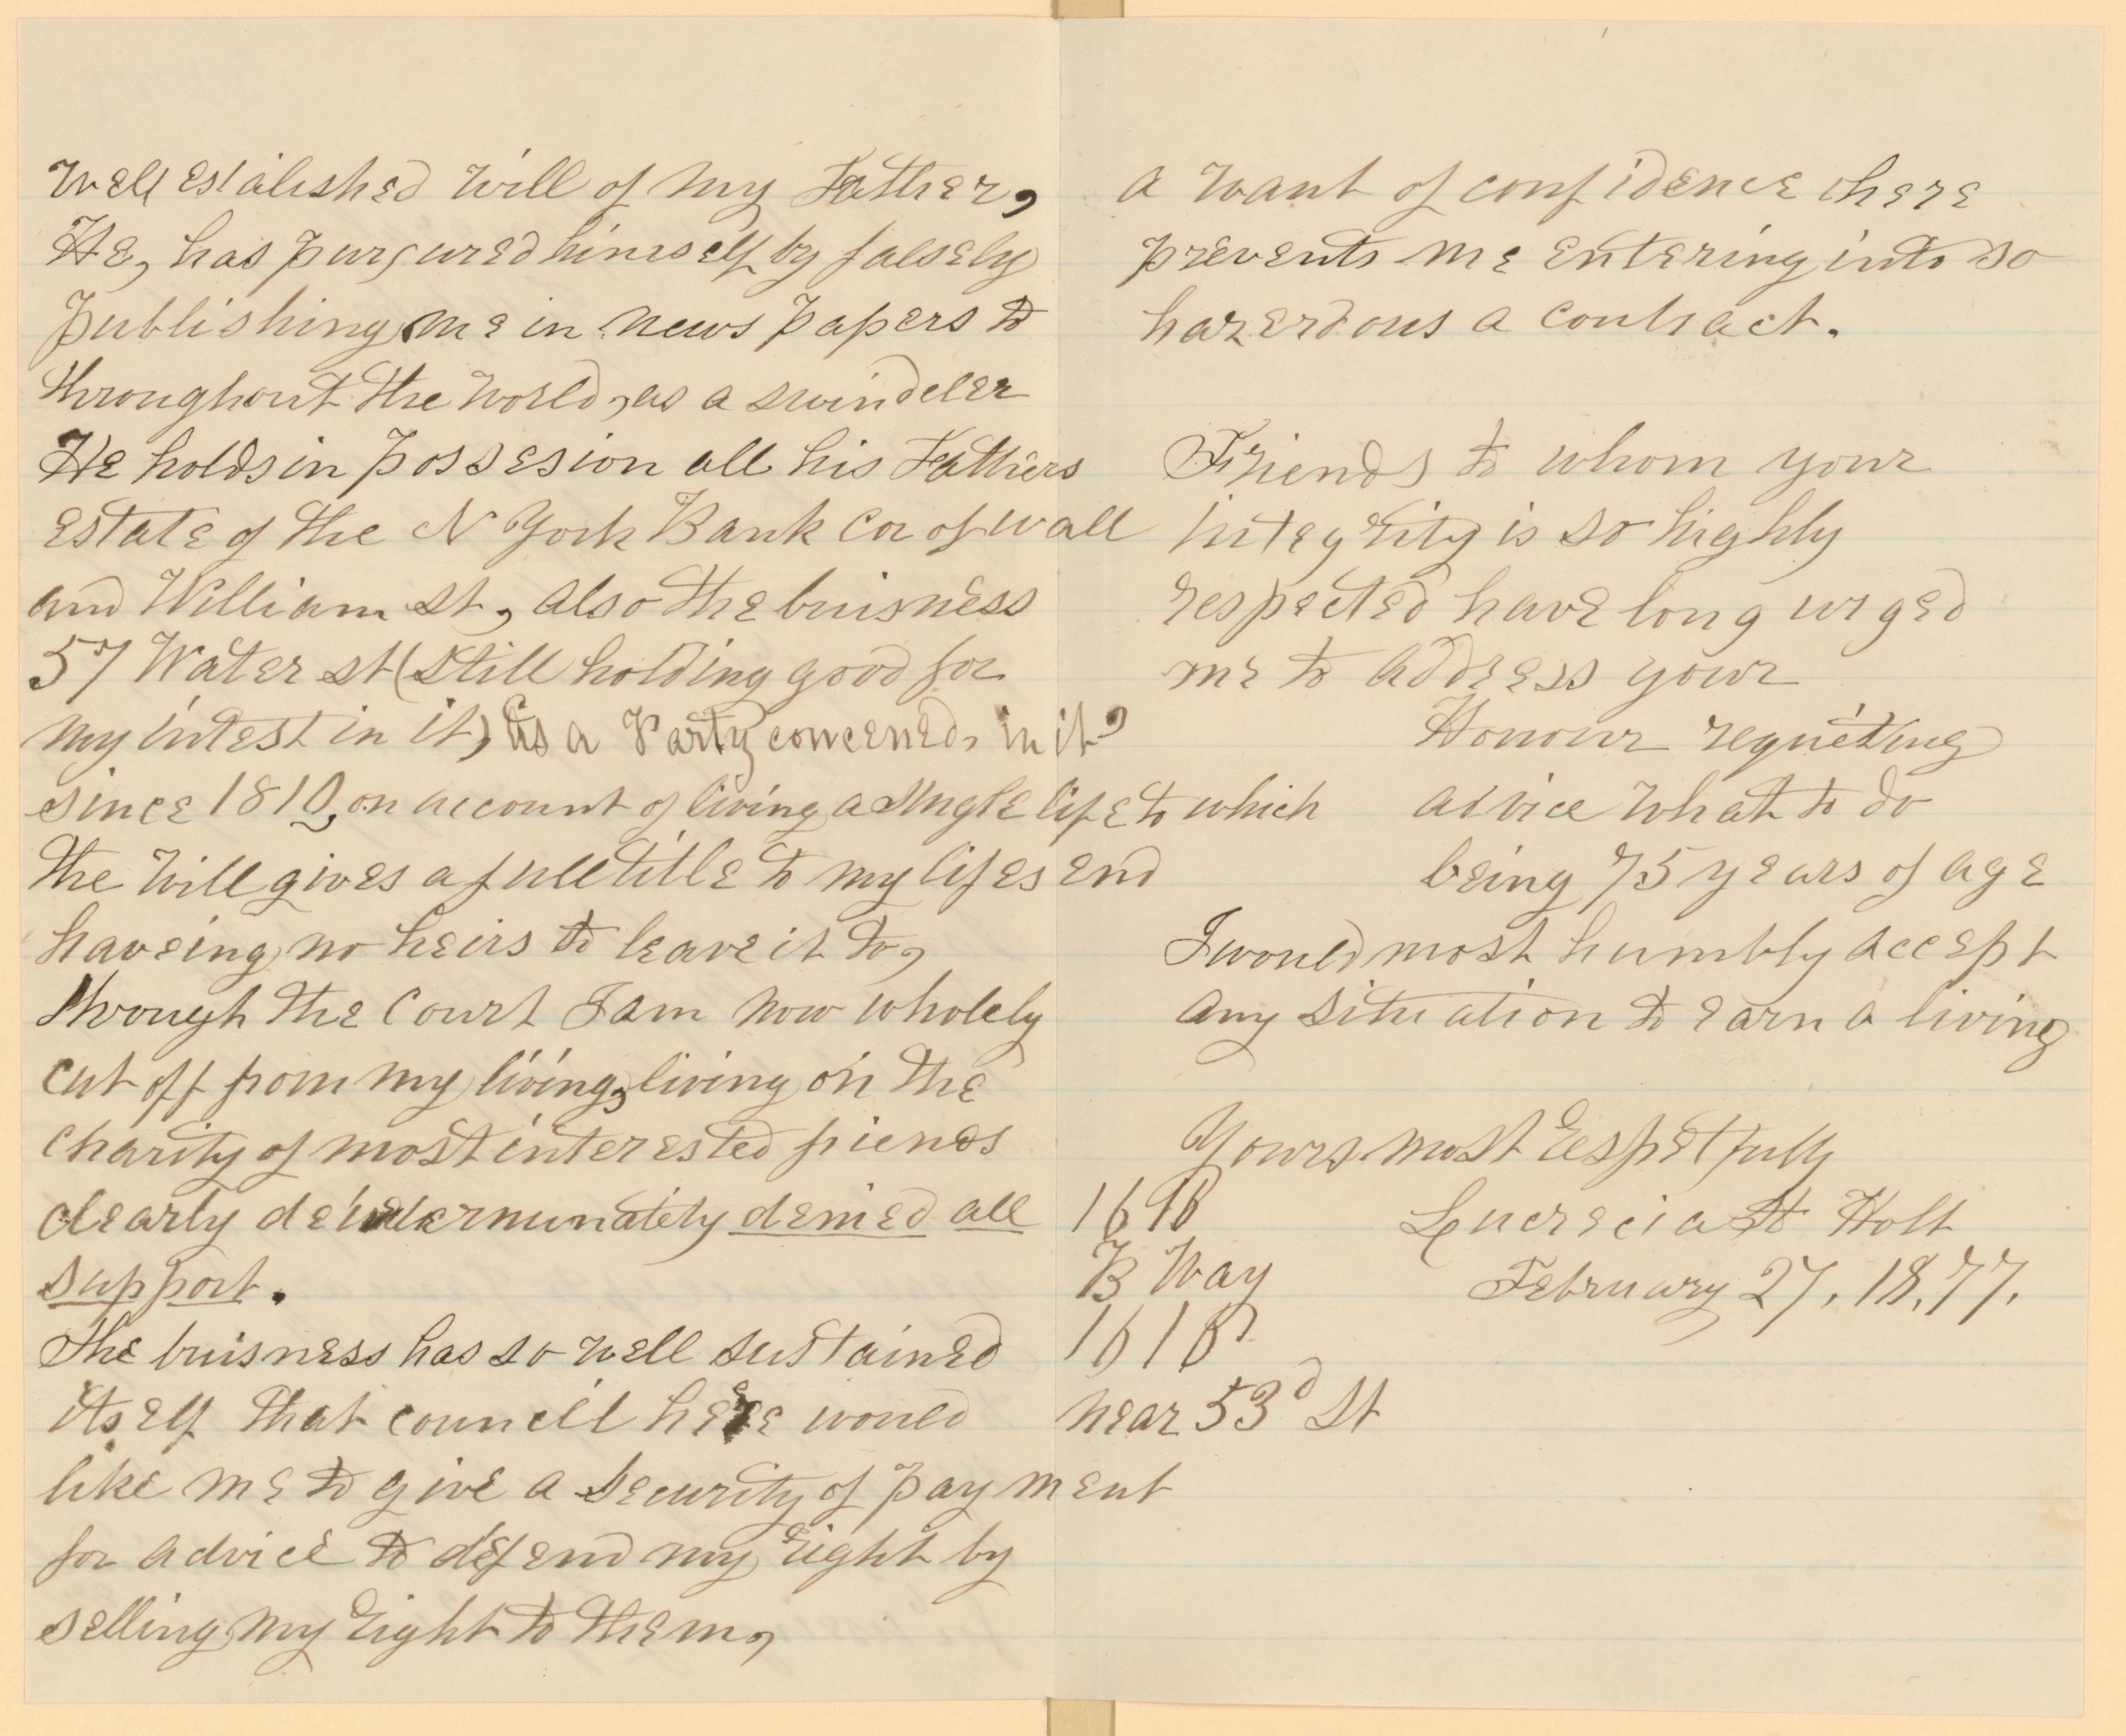 well established will of my Father,
He, has purjured himself by falsely
publishing me in news papers to
throughout the world, as a swindeler
He holds in possesion all his Fathers
estate of the N York Bank cor of wall
and William st, also the buisness
57 Water st (still holding good for
my intest in it, as a Party concened, in it,
since 1810, on account of living a single life to which
the will gives a full title to my lifes end
haveing no heirs to leave it to,
through the court I am now wholely
cut off from my living, living on the
charity of most interested friends
clearly determunately denied all
support.
The buisness has so well sustained
itself that councill here would
like me to give a security of payment
for advice to defend my right by
selling my right to them,
a want of confidence here
prevents me entering into so
hazerdous a contract.
Friends to whom your
integrity is so highly
respected have long urged
me to address your
Honour requeting
advice what to do
being 75 years of age
I would most humbly accept
any situation to earn a living
Yours most respetfully
Lucrecia St Holt
February 27, 18,77,
B Way
near 53d St